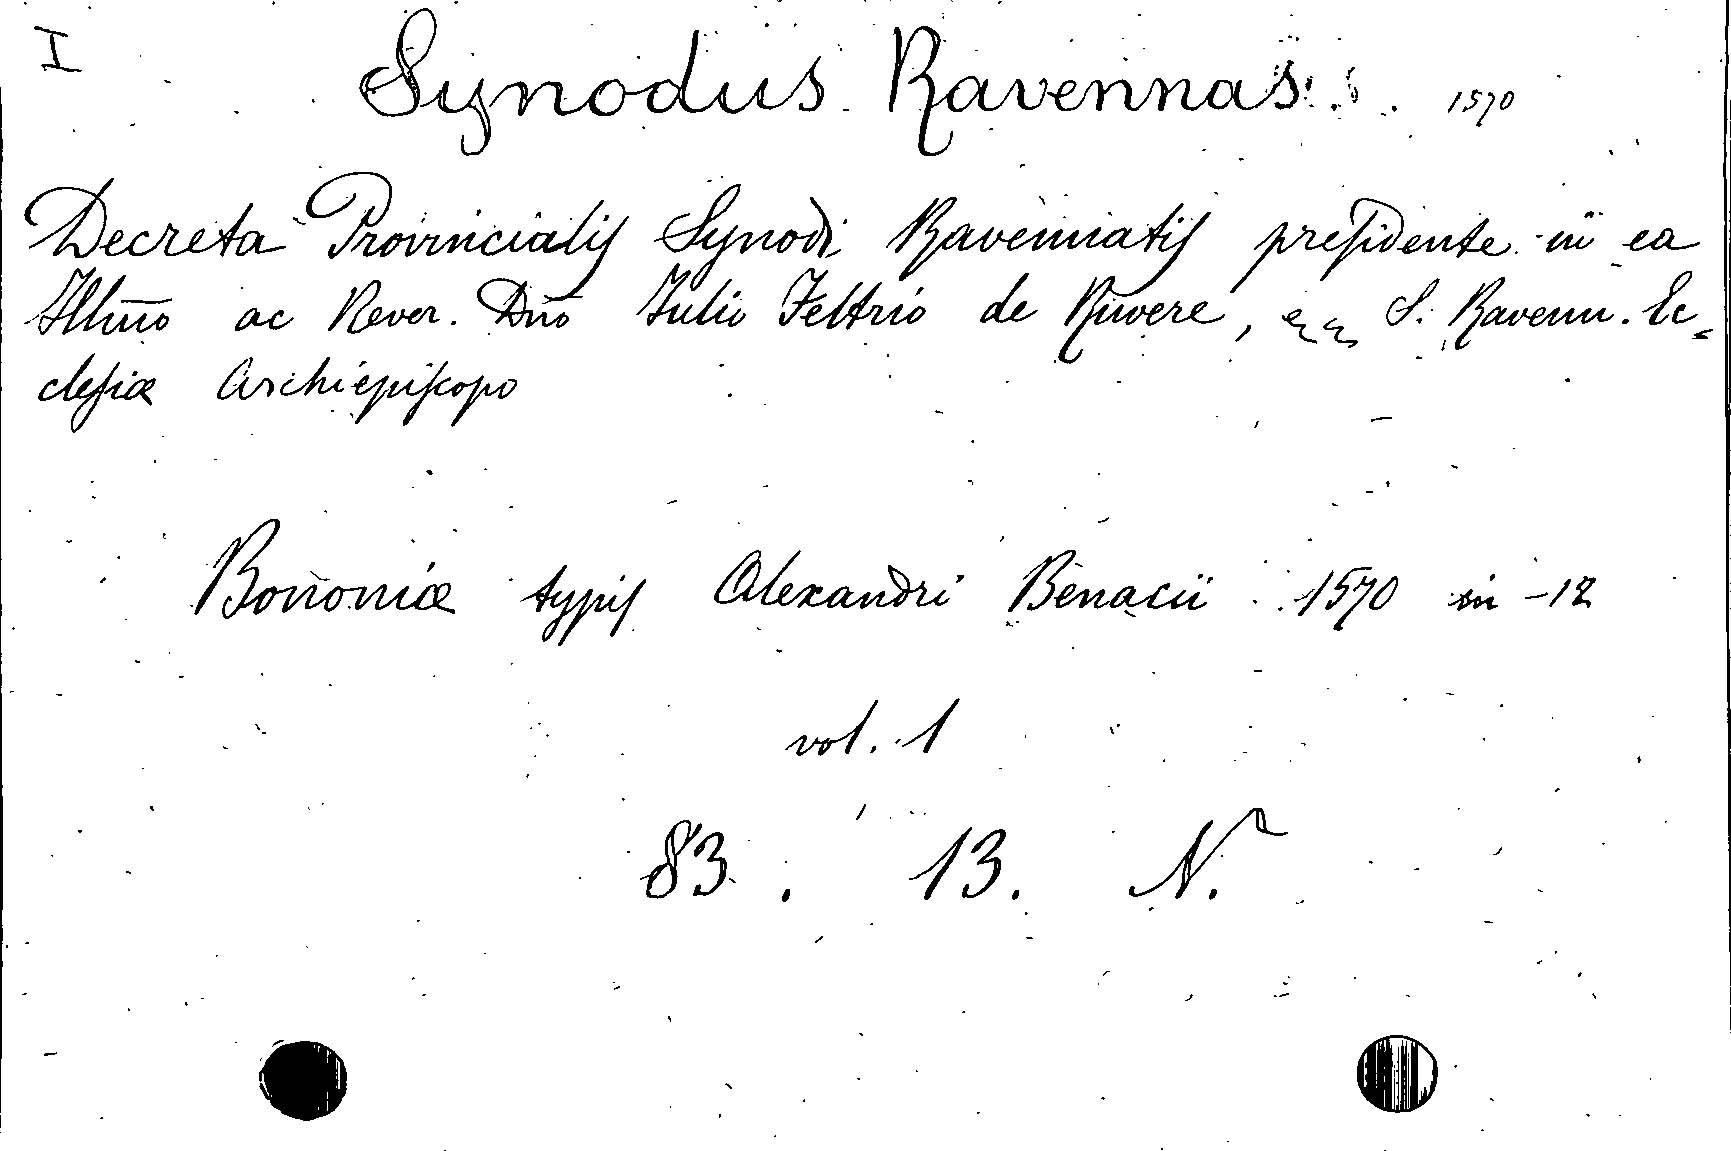 I
Synodus Ravennas. 1570
Decreta Provincialiſ Synodi Ravennatiſ preſidente in ea
Illm̃o ac Rever. Dño Julio Feltrio de Ruvere, S. Ravenn. Ec=
cleſiæ Archiepiſcopo
Bononiæ typiſ Alexandri Benacii 1570 in -12
vol. 1
83. 13. N.